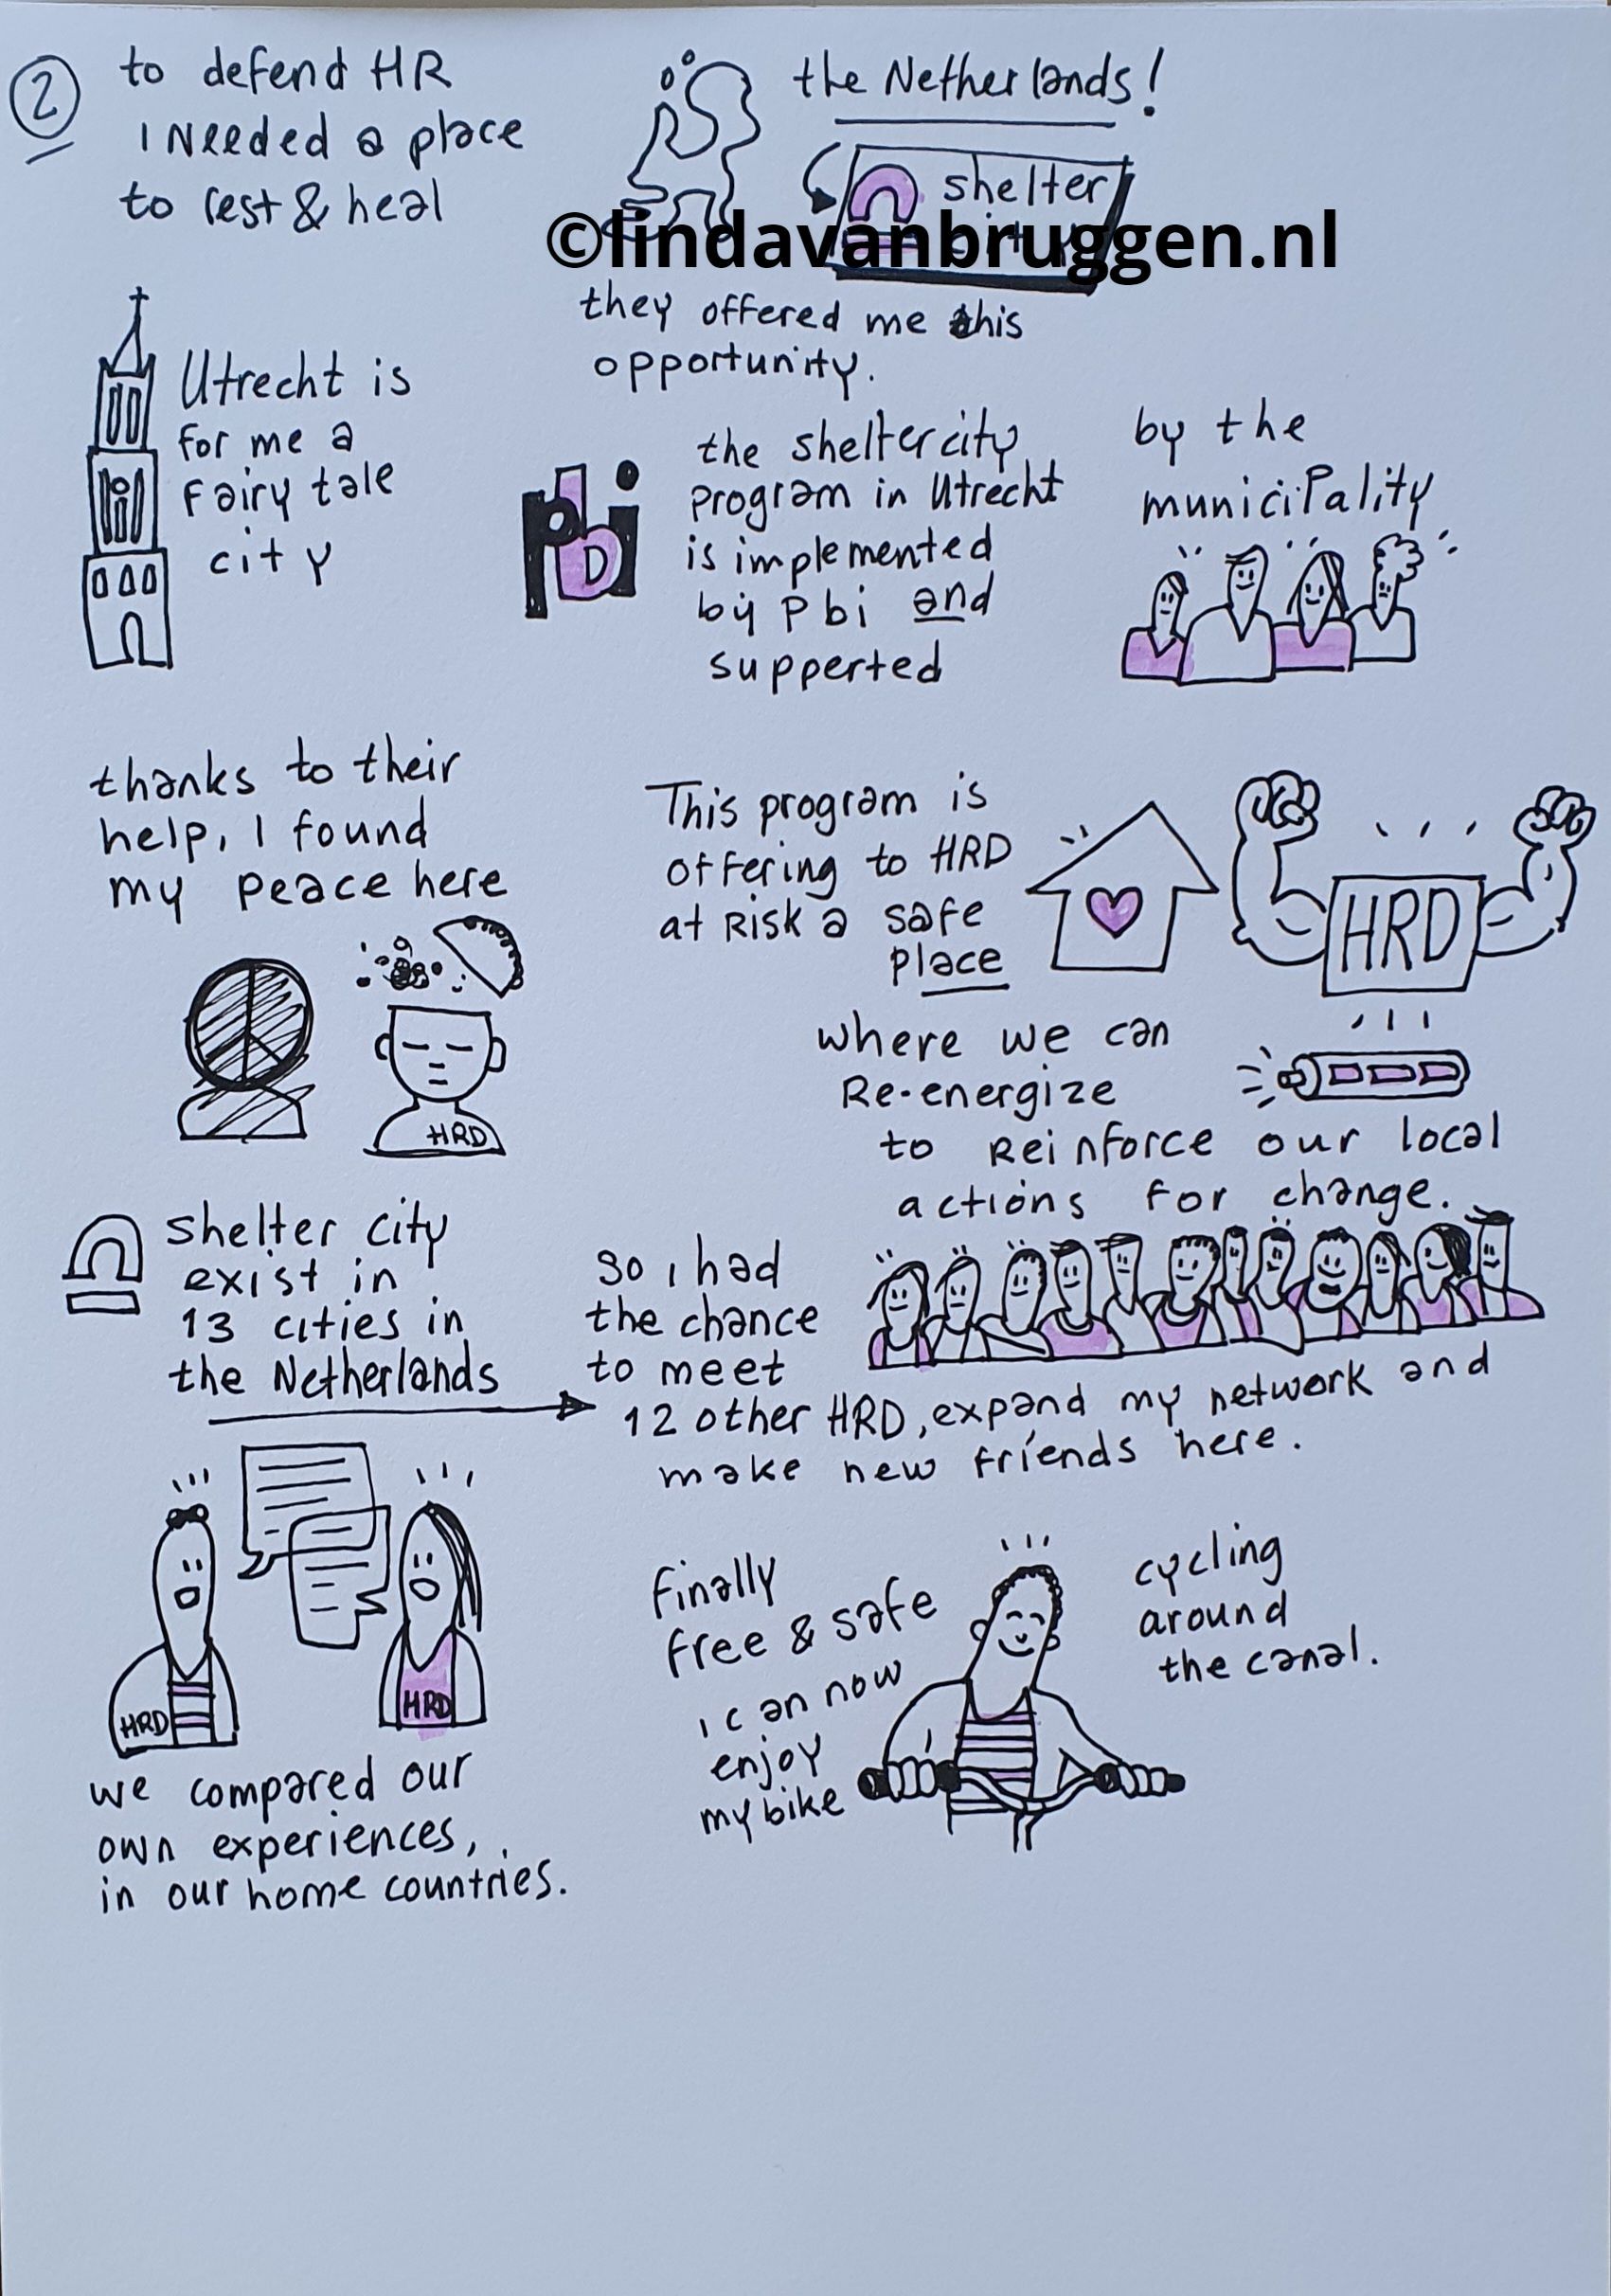 2
to defend HR
I Needed a place
to rest & heal
the Netherlands!
shelter
©lindavanbruggen.nl
they offered me this
opportunity.
Utrecht is
for me a
Fairy tale
city
pbi
the sheltercity
program in Utrecht
is implemented
by pbi and
supperted
by the
municipality
thanks to their
help, I found
my peace here
HRD
This program is
offering to HRD
at Risk a safe
place
HRD
where we can
Re-energize
to Reinforce our local
actions for change.
shelter city
exist in
13 cities in
the Netherlands
so I had
the chance
to meet
12 other HRD, expand my network and
make new friends here.
HRD
HRD
we compared our
own experiences,
in our home countries.
Finally
free & safe
I can now
enjoy
my bike
cycling
around
the canal.